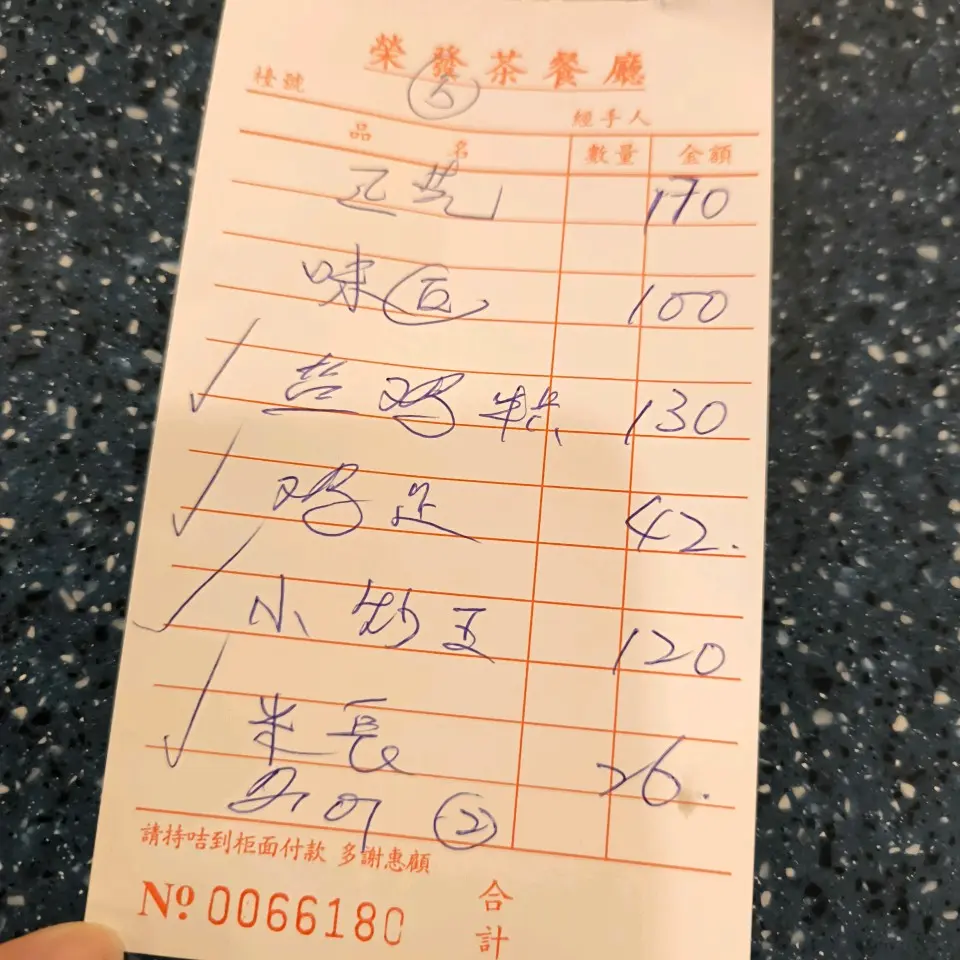 榮發茶餐廳
檯號 5 經手人
品名 數量 金額
170
味 100
鸡 130
鸡足 42.
小炒王 120
米長 26.
②
請持咭到柜面付款 多謝惠顧
合計
№ 0066180